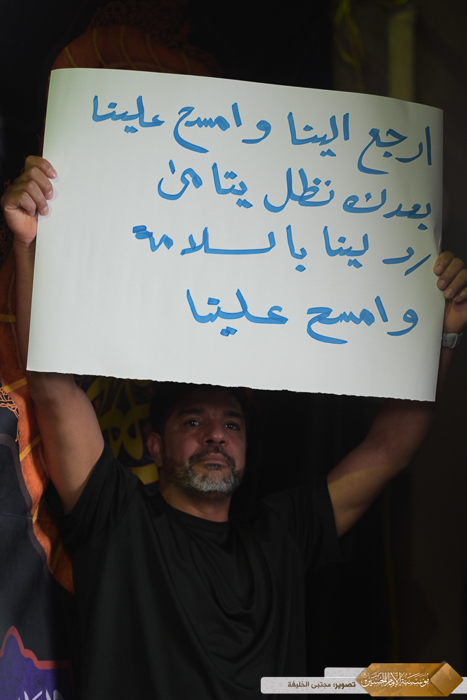 ارجع الينا وامسح علينا
بعدك نظل يتامىٰ
رد لينا بالسلامة
وامسح علينا
مؤسسة الإمام الحسين
تصوير: مجتبى الخليفة